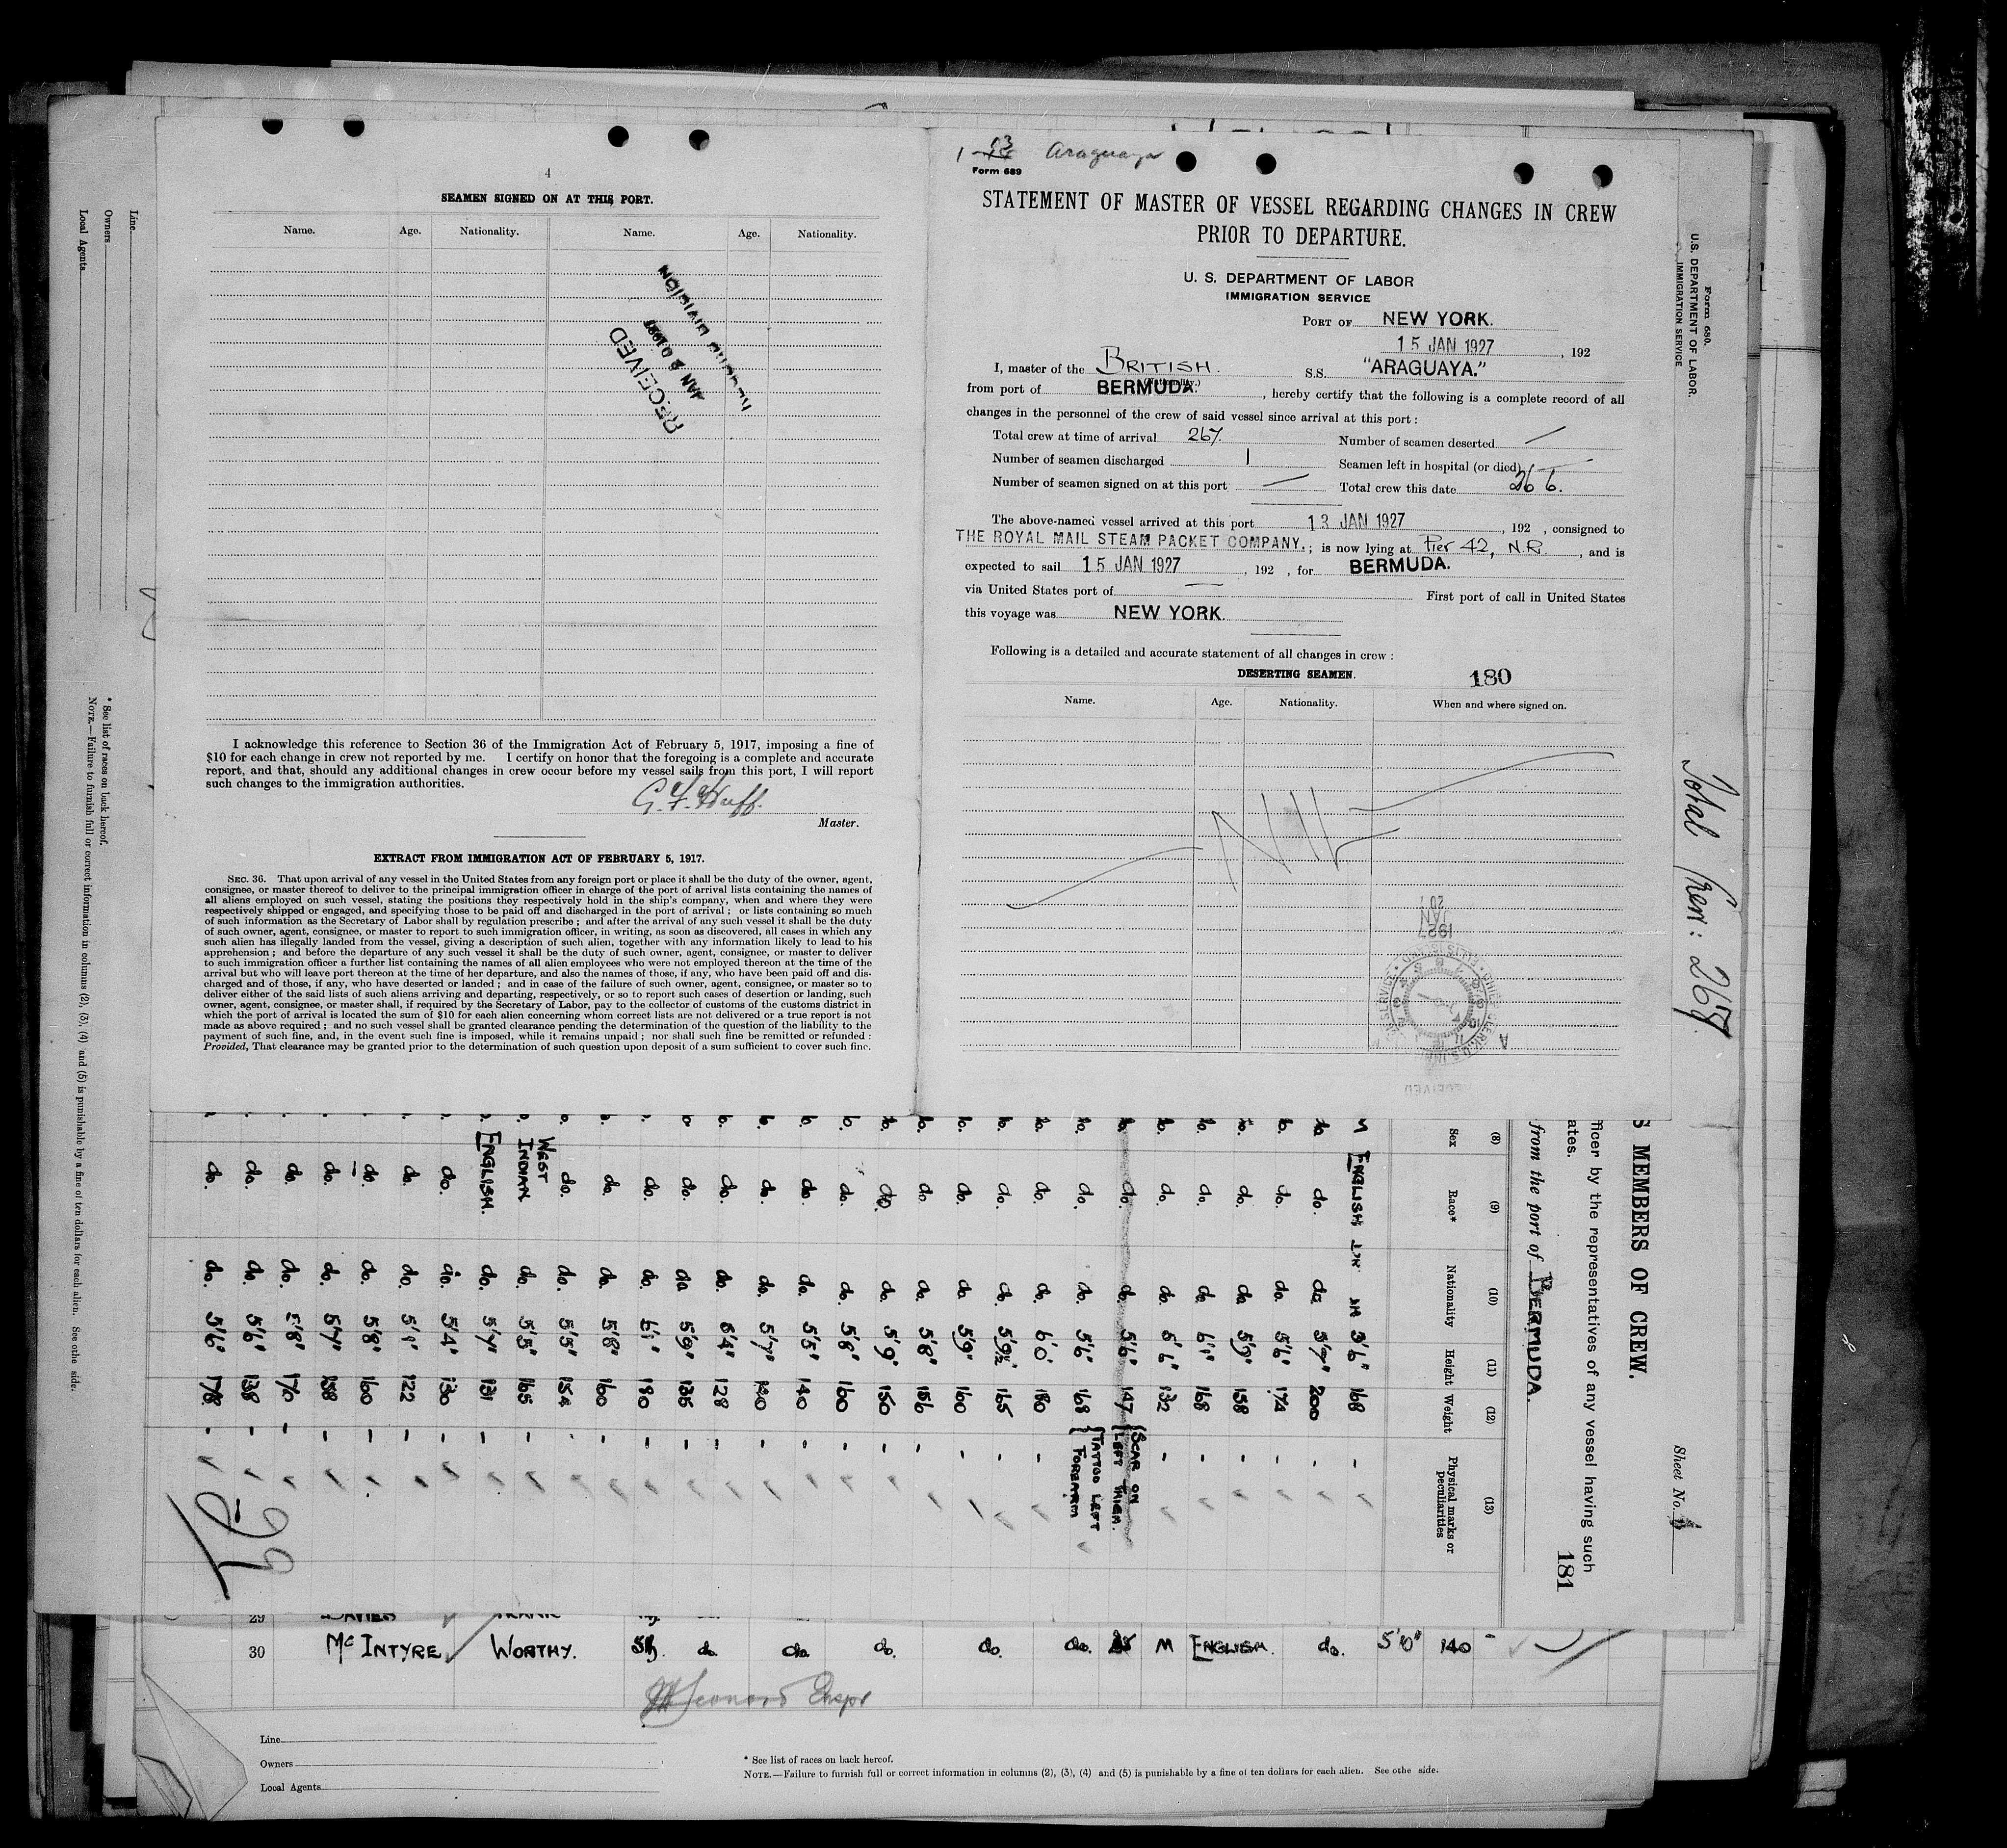 4
SEAMEN SIGNED ON AT THIS PORT.
Name. Age. Nationality. Name. Age. Nationality.
RECEIVED
JAN 20 1927
RECORD DIVISION
I acknowledge this reference to Section 36 of the Immigration Act of February 5, 1917, imposing a fine of
$10 for each change in crew not reported by me. I certify on honor that the foregoing is a complete and accurate
report, and that, should any additional changes in crew occur before my vessel sails from this port, I will report
such changes to the immigration authorities.
G. F. Huff.
Master.
EXTRACT FROM IMMIGRATION ACT OF FEBRUARY 5, 1917.
SEC. 36. That upon arrival of any vessel in the United States from any foreign port or place it shall be the duty of the owner, agent,
consignee, or master thereof to deliver to the principal immigration officer in charge of the port of arrival lists containing the names of
all aliens employed on such vessel, stating the positions they respectively hold in the ship's company, when and where they were
respectively shipped or engaged, and specifying those to be paid off and discharged in the port of arrival ; or lists containing so much
of such information as the Secretary of Labor shall by regulation prescribe ; and after the arrival of any such vessel it shall be the duty
of such owner, agent, consignee, or master to report to such immigration officer, in writing, as soon as discovered, all cases in which any
such alien has illegally landed from the vessel, giving a description of such alien, together with any information likely to lead to his
apprehension ; and before the departure of any such vessel it shall be the duty of such owner, agent, consignee, or master to deliver
to such immigration officer a further list containing the names of all alien employees who were not employed thereon at the time of the
arrival but who will leave port thereon at the time of her departure, and also the names of those, if any, who have been paid off and dis-
charged and of those, if any, who have deserted or landed ; and in case of the failure of such owner, agent, consignee, or master so to
deliver either of the said lists of such aliens arriving and departing, respectively, or so to report such cases of desertion or landing, such
owner, agent, consignee, or master shall, if required by the Secretary of Labor, pay to the collector of customs of the customs district in
which the port of arrival is located the sum of $10 for each alien concerning whom correct lists are not delivered or a true report is not
made as above required ; and no such vessel shall be granted clearance pending the determination of the question of the liability to the
payment of such fine, and, in the event such fine is imposed, while it remains unpaid ; nor shall such fine be remitted or refunded :
Provided, That clearance may be granted prior to the determination of such question upon deposit of a sum sufficient to cover such fine.
1 13 Araguaya
Form 689
STATEMENT OF MASTER OF VESSEL REGARDING CHANGES IN CREW
PRIOR TO DEPARTURE.
U. S. DEPARTMENT OF LABOR
IMMIGRATION SERVICE
PORT OF NEW YORK.
15 JAN 1927, 192
I, master of the BRITISH. S.S. "ARAGUAYA."
from port of BERMUDA. , hereby certify that the following is a complete record of all
changes in the personnel of the crew of said vessel since arrival at this port :
Total crew at time of arrival 267. Number of seamen deserted —
Number of seamen discharged 1 Seamen left in hospital (or died) —
Number of seamen signed on at this port — Total crew this date 266.
The above-named vessel arrived at this port 13 JAN 1927, 192 , consigned to
THE ROYAL MAIL STEAM PACKET COMPANY. ; is now lying at Pier 42, N.R. , and is
expected to sail 15 JAN 1927 , 192 , for BERMUDA.
via United States port of — First port of call in United States
this voyage was NEW YORK.
Following is a detailed and accurate statement of all changes in crew :
DESERTING SEAMEN. 180
Name. Age. Nationality. When and where signed on.
Nil
1927
JAN
20
Form 680.
U.S. DEPARTMENT OF LABOR.
IMMIGRATION SERVICE
Total Crew: 267
Line
Owners
Local Agents
* See list of races on back hereof.
NOTE.—Failure to furnish full or correct information in columns (2), (3), (4) and (5) is punishable by a fine of ten dollars for each alien. See othe side.
Sheet No.
S MEMBERS OF CREW.
ficer by the representatives of any vessel having such
ates.
181
from the port of BERMUDA.
(8) (9) (10) (11) (12) (13)
Sex Race* Nationality Height Weight Physical marks or peculiarities
M ENGLISH 5'6" 168 -
do. do. do. 5'7" 200 -
do. do. do. 5'6" 174 -
do. do. do. 5'9" 158 -
do. do. do. 6'1" 168 -
do. do. do. 5'6" 132 -
do. do. do. 5'6" 147 SCAR ON LEFT THIGH.
do. do. do. 5'6" 168 TATTOO LEFT FOREARM
do. do. do. 6'0" 180 -
do. do. do. 5'9½" 165 -
do. do. do. 5'9" 160 -
do. do. do. 5'8" 156
do. do. do. 5'9" 150 -
do. do. do. 5'8" 160 -
do. do. do. 5'5" 140 -
do. do. do. 5'7" 140 -
do. do. do. 5'4" 128 -
do. do. do. 5'9" 135 -
do. do. do. 6'1" 190 -
do. do. do. 5'8" 160 -
do. do. do. 5'5" 154
WEST INDIAN do. 5'5" 165 -
ENGLISH. do. 5'7" 131 -
do. do. 5'4" 130 -
do. do. 5'9" 122 -
do. do. 5'8" 160 -
do. do. 5'7" 158 -
do. do. 5'8" 170 -
do. do. 5'6" 138 -
do. do. 5'6" 178 -
29 DAVIES FRANK
30 McINTYRE WORTHY. do. do. do. do. do. M ENGLISH. do. 5'10" 140 -
Leonard Inspr
Line
Owners
Local Agents
* See list of races on back hereof.
NOTE.—Failure to furnish full or correct information in columns (2), (3), (4) and (5) is punishable by a fine of ten dollars for each alien. See othe side.